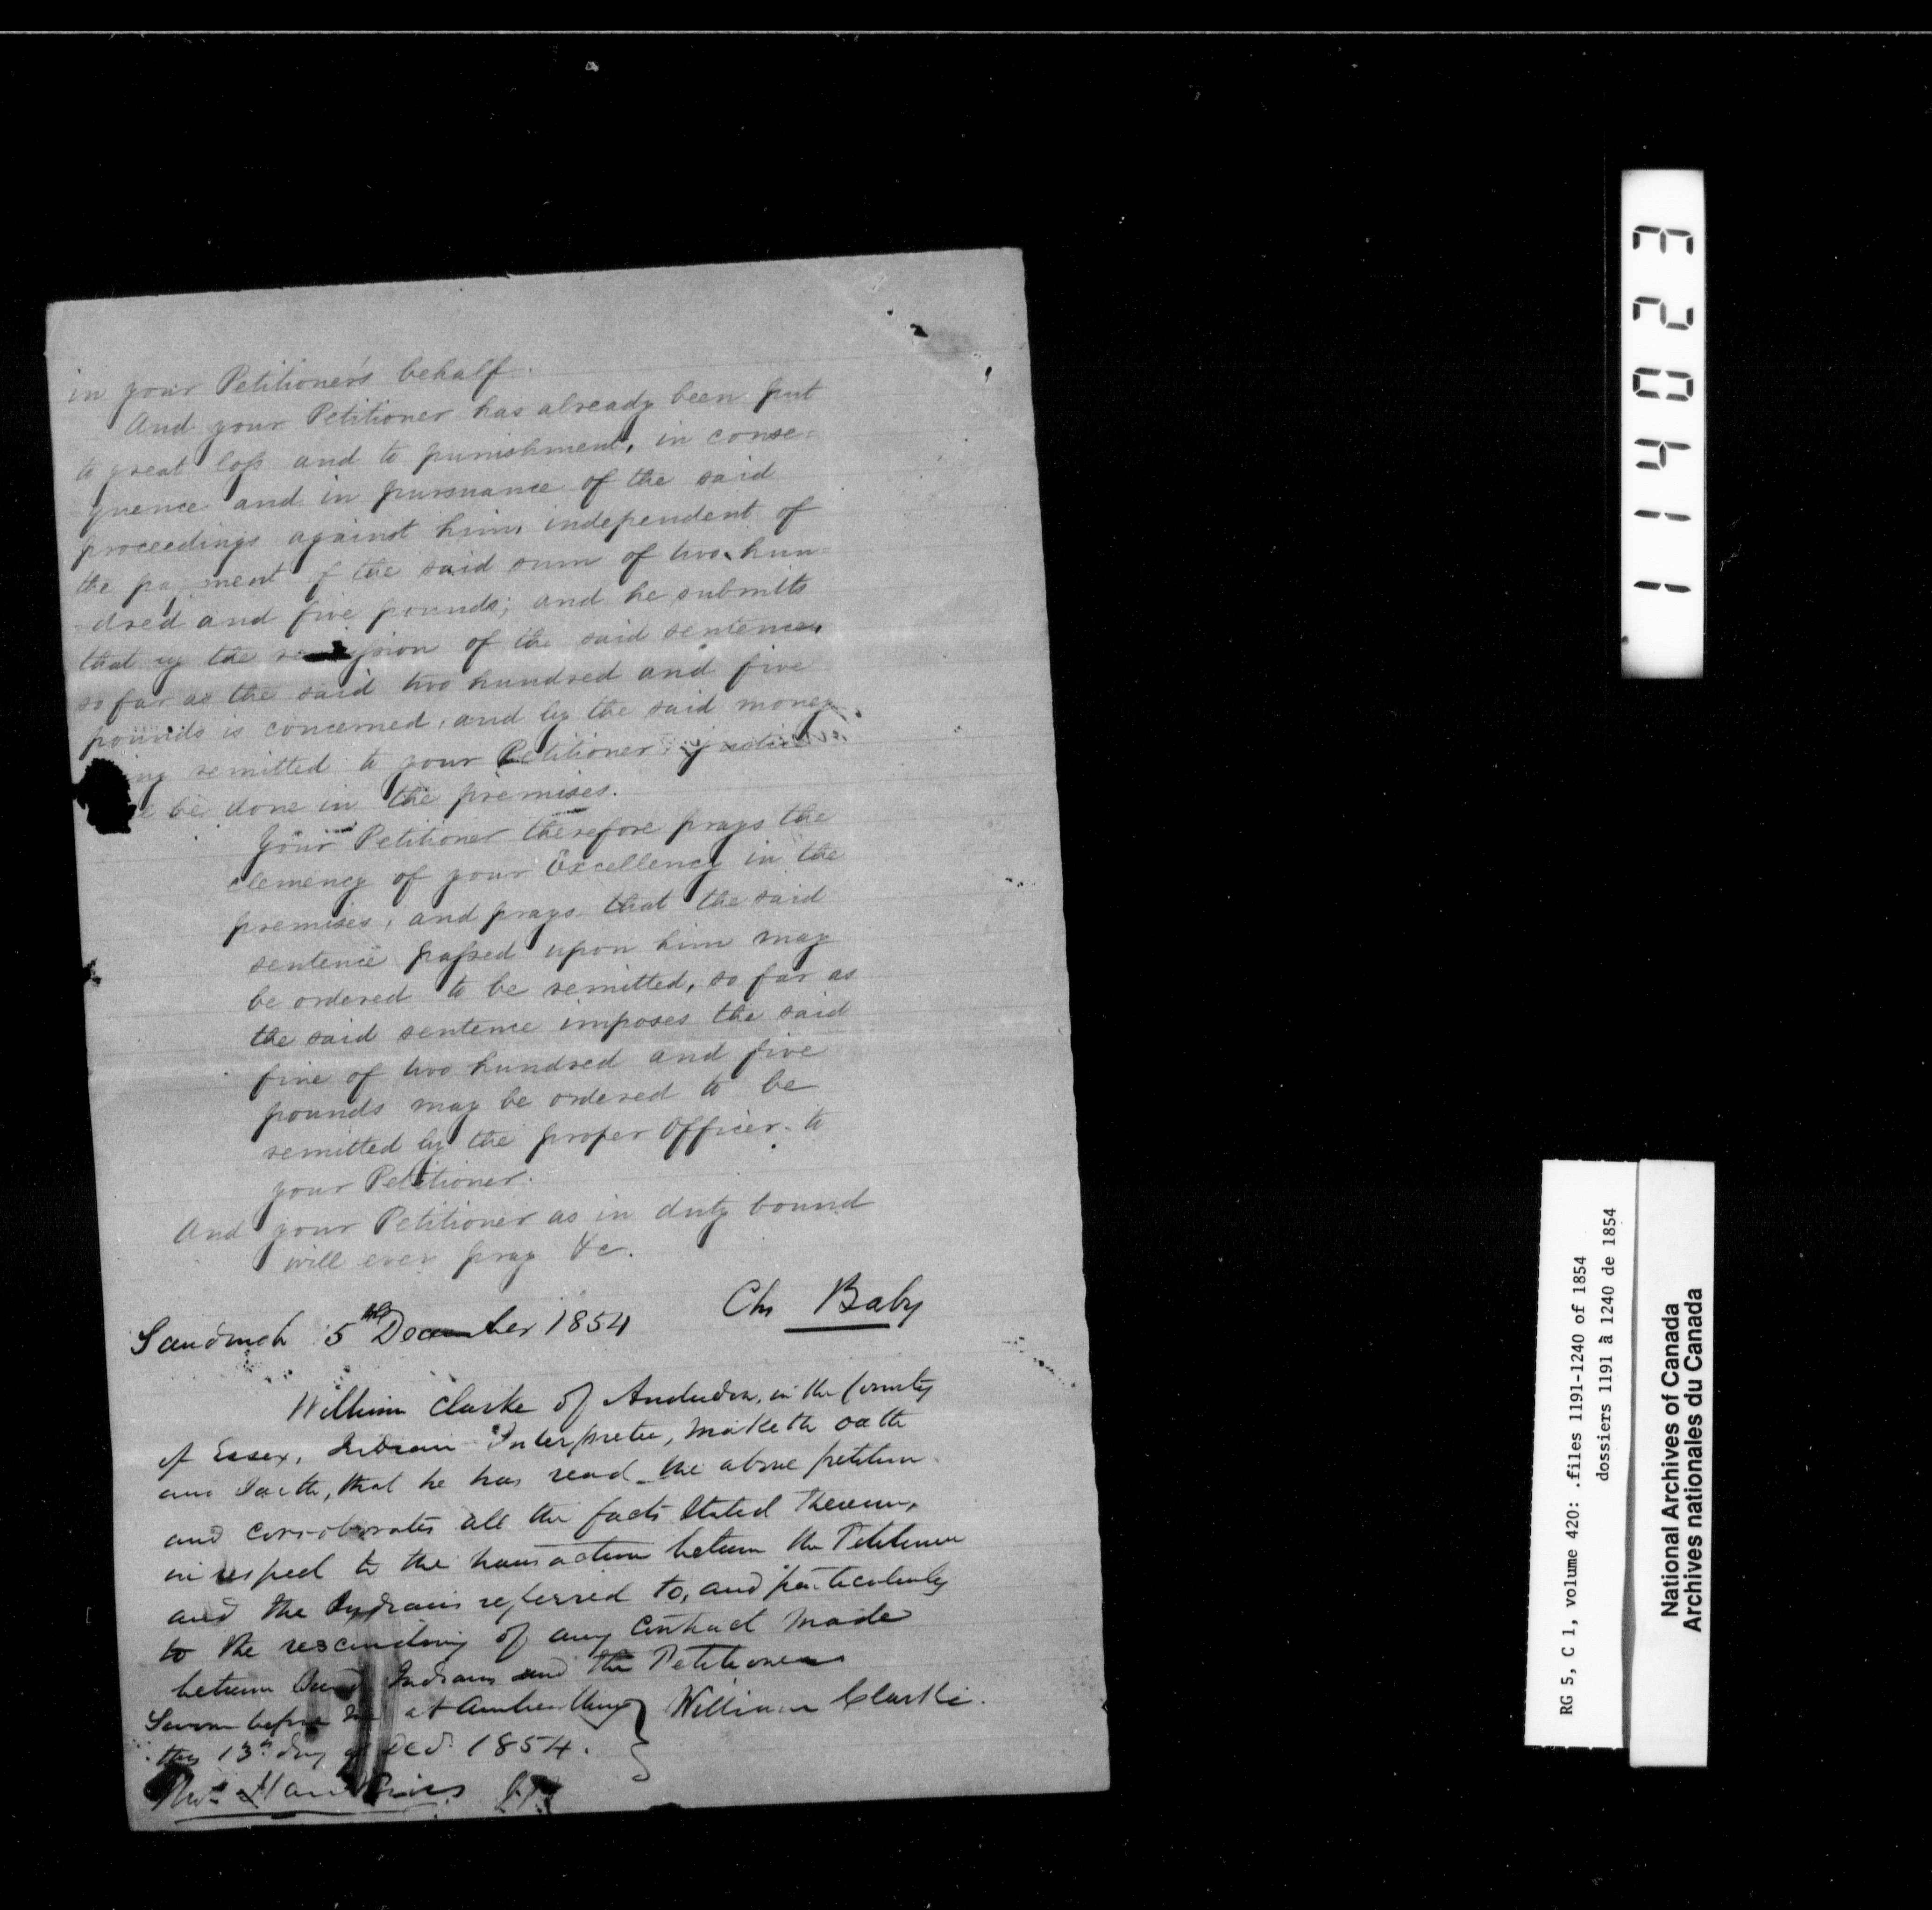 in your Petitioner's behalf.
And your Petitioner has already been put
to great loss and to punishment, in conse=
quence and in pursuance of the said
proceedings against him, independent of
the payment of the said sum of two hun=
-dred and five pounds; and he submits
that by the remission of the said sentence,
so far as the said two hundred and five
pounds is concerned, and by the said money
remitted to your Petitioner, justice
be done in the premises.
Your Petitioner therefore prays the
clemency of your Excellency in the
premises, and prays that the said
sentence passed upon him may
be ordered to be remitted, so far as
the said sentence imposes the said
fine of two hundred and five
pounds may be ordered to be
remitted by the proper Officer to
your Petitioner.
And your Petitioner as in duty bound
will ever pray &c.
Chs Baby
Sandwich 5th December 1854
William Clarke of Anderdon, in the County
of Essex, Indian Interpreter, maketh oath
and saith, that he has read the above petition
and corroborates all the facts stated therein,
in respect to the transaction between the Petitioner
and the Indians referred to, and particularly
to the rescinding of any contract made
between said Indians and the Petitioner
Sworn before me at Amherstburg } William Clarke.
this 13th day of Decr. 1854.
Hawkins J.P.
1 1 4 0 2 3
RG 5, C 1, volume 420: .files 1191-1240 of 1854
dossiers 1191 à 1240 de 1854
National Archives of Canada
Archives nationales du Canada